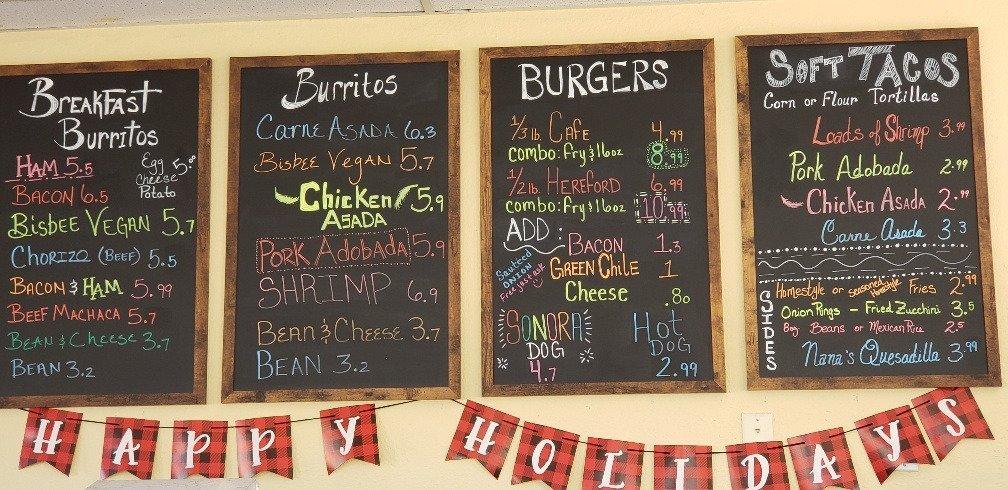 BREAKFAST
BURRITOS
HAM 5.5
Egg Cheese Potato 5.8
BACON 6.5
BISBEE VEGAN 5.7
CHORIZO (BEEF) 5.5
BACON & HAM 5.99
BEEF MACHACA 5.7
BEAN & CHEESE 3.7
BEAN 3.2
Burritos
CARNE ASADA 6.3
BISBEE VEGAN 5.7
Chicken ASADA 5.9
PORK Adobada 5.9
SHRIMP 6.9
BEAN & CHEESE 3.7
BEAN 3.2
BURGERS
1/3 lb. CAFE 4.99
combo: Fry & 16oz 8.99
1/2 lb. HEREFORD 6.99
combo: Fry & 16oz 10.99
ADD:
BACON 1.3
Sautéed ONION Free Just ask
GREEN Chile 1
Cheese .80
SONORA DOG 4.7
Hot DOG 2.99
SOFT TACOS
Corn or Flour Tortillas
Loads of Shrimp 3.99
Pork Adobada 2.99
Chicken Asada 2.99
Carne Asada 3.3
SIDES
Homestyle or Seasoned Homestyle Fries 2.99
Onion Rings - Fried Zucchini 3.5
8oz Beans or Mexican Rice 2.5
Nana's Quesadilla 3.99
HAPPY HOLIDAYS